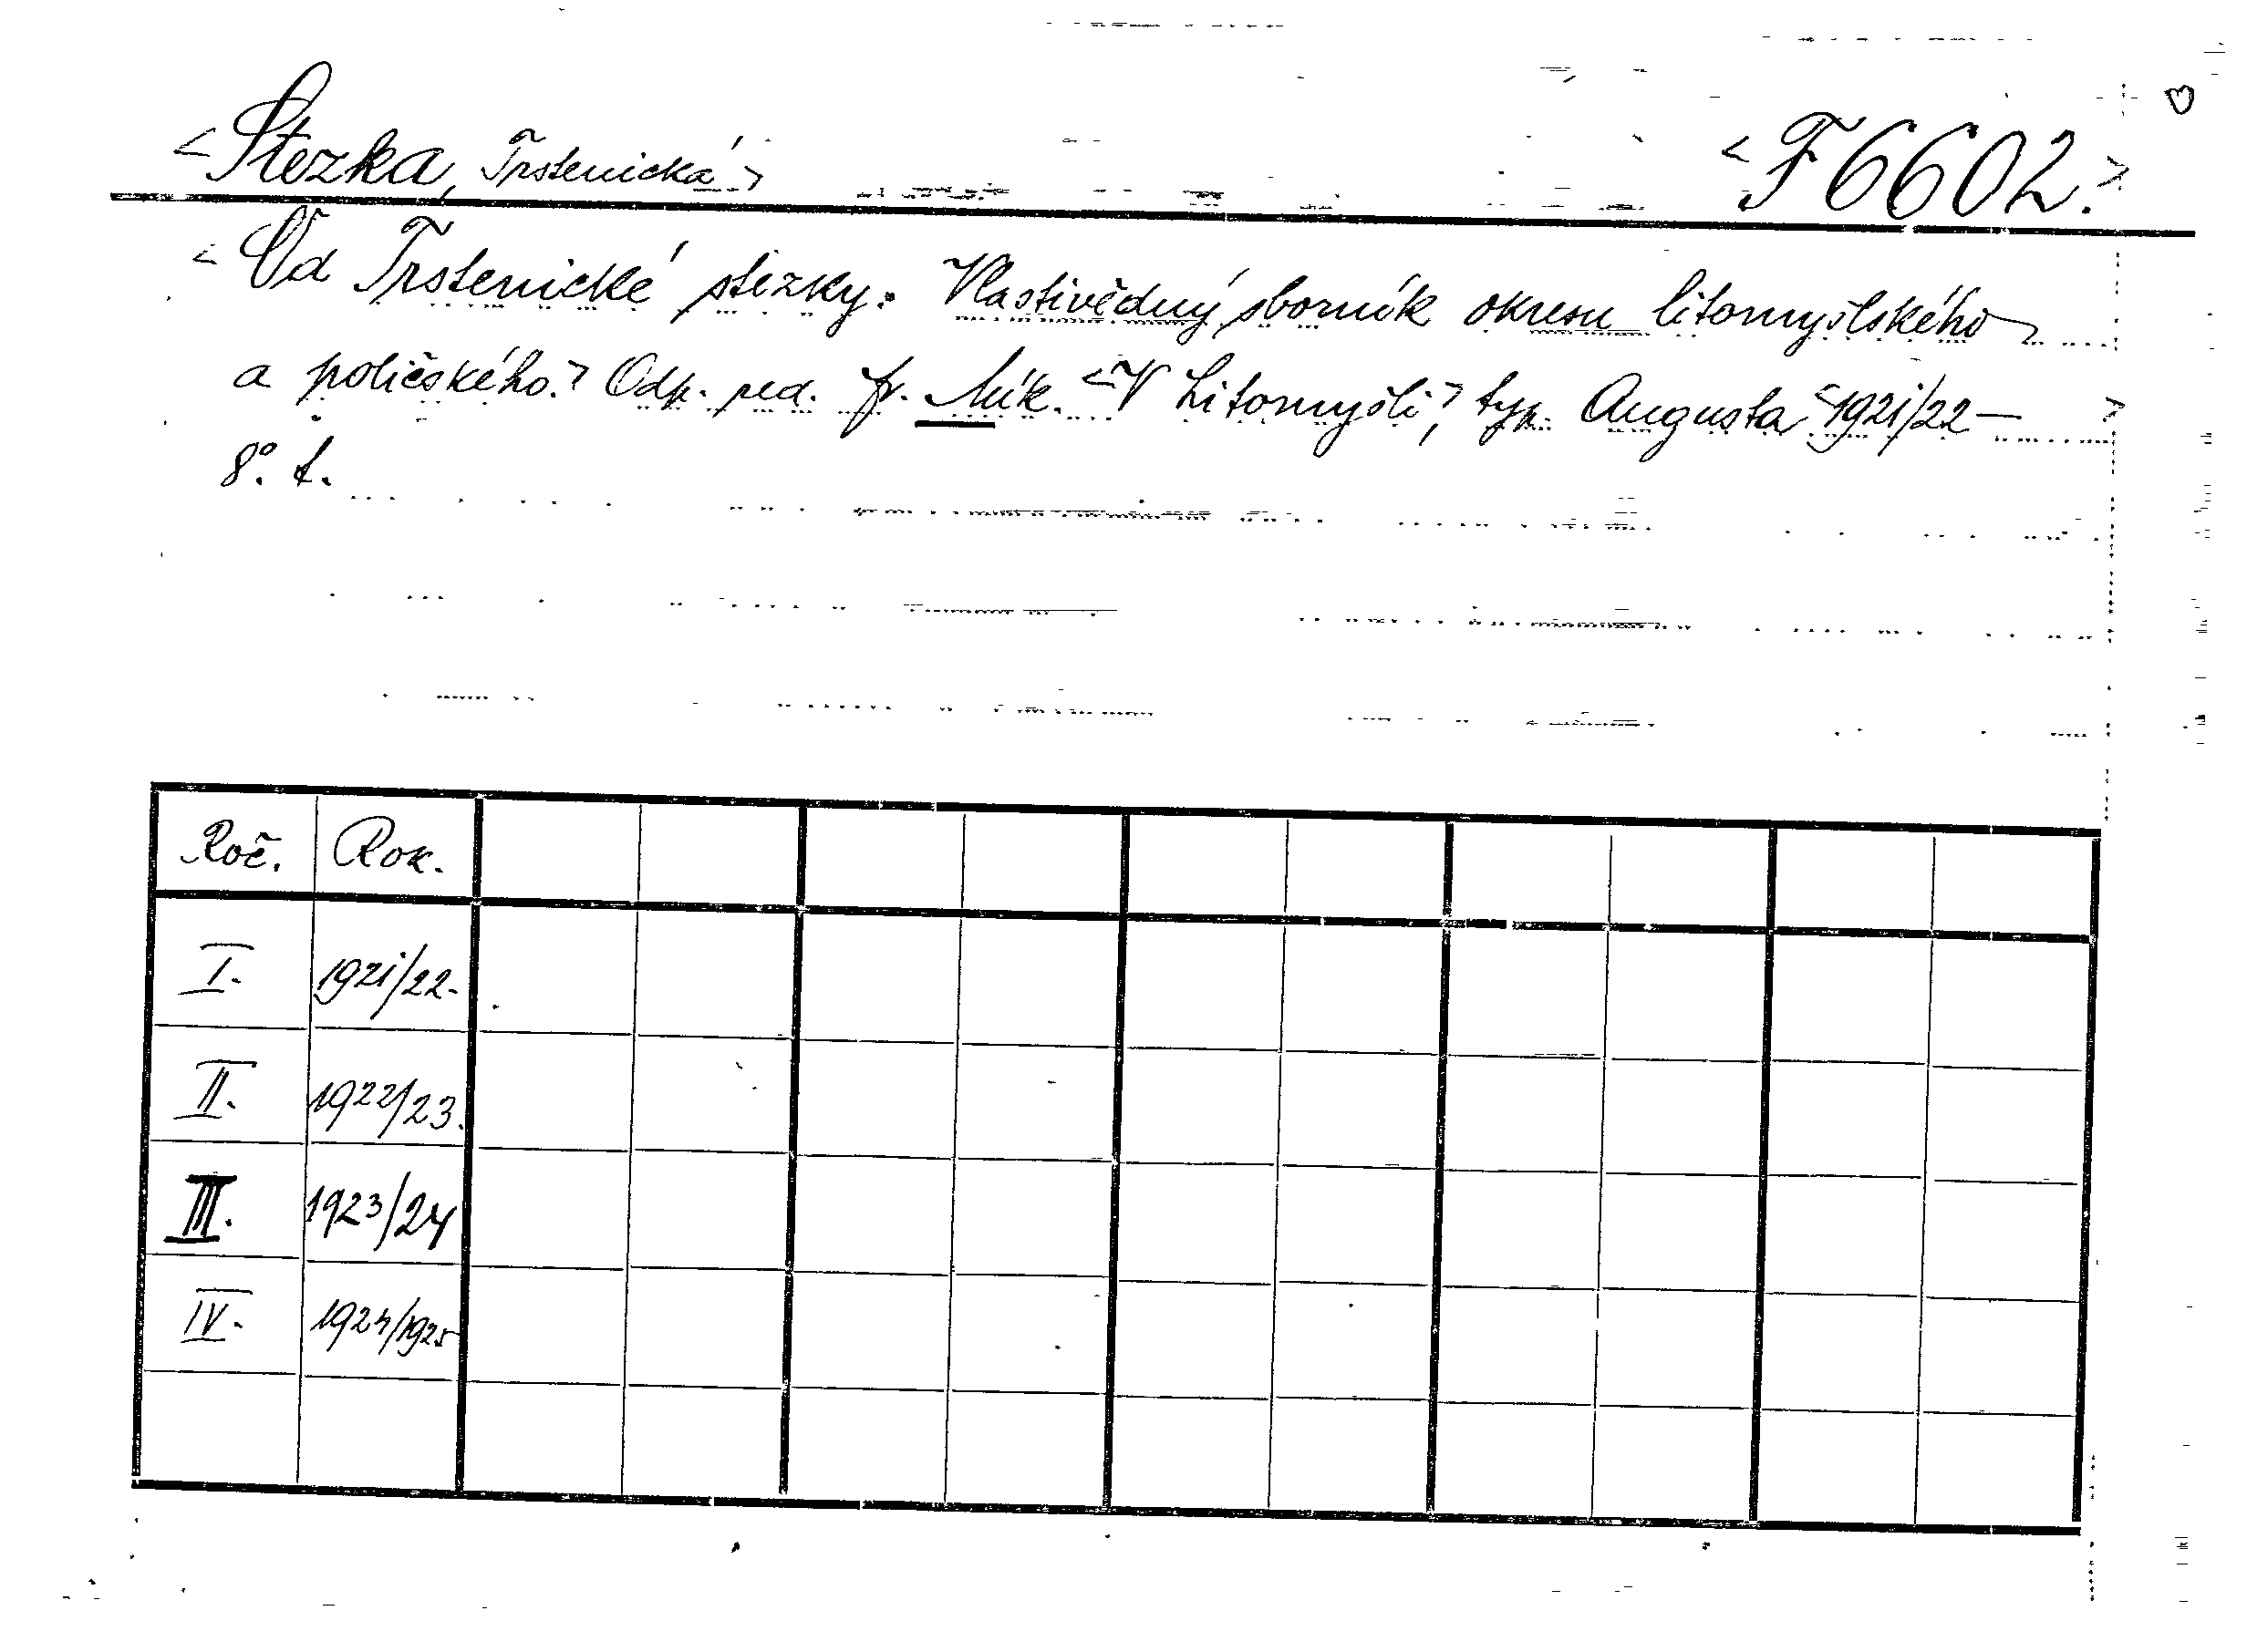 <Stezka, Trstenická> <F 6602.>
<Od Trstenické stezky. Vlastivědný sborník okresu litomyšlského
a poličského.> Odp. red. Fr. <V Litomyšli,> typ. Augusta <1921/22— >
8°. t.
Roč. Rok.
I. 1921/22.
II. 1922/23.
III. 1923/24
IV. 1924/1925